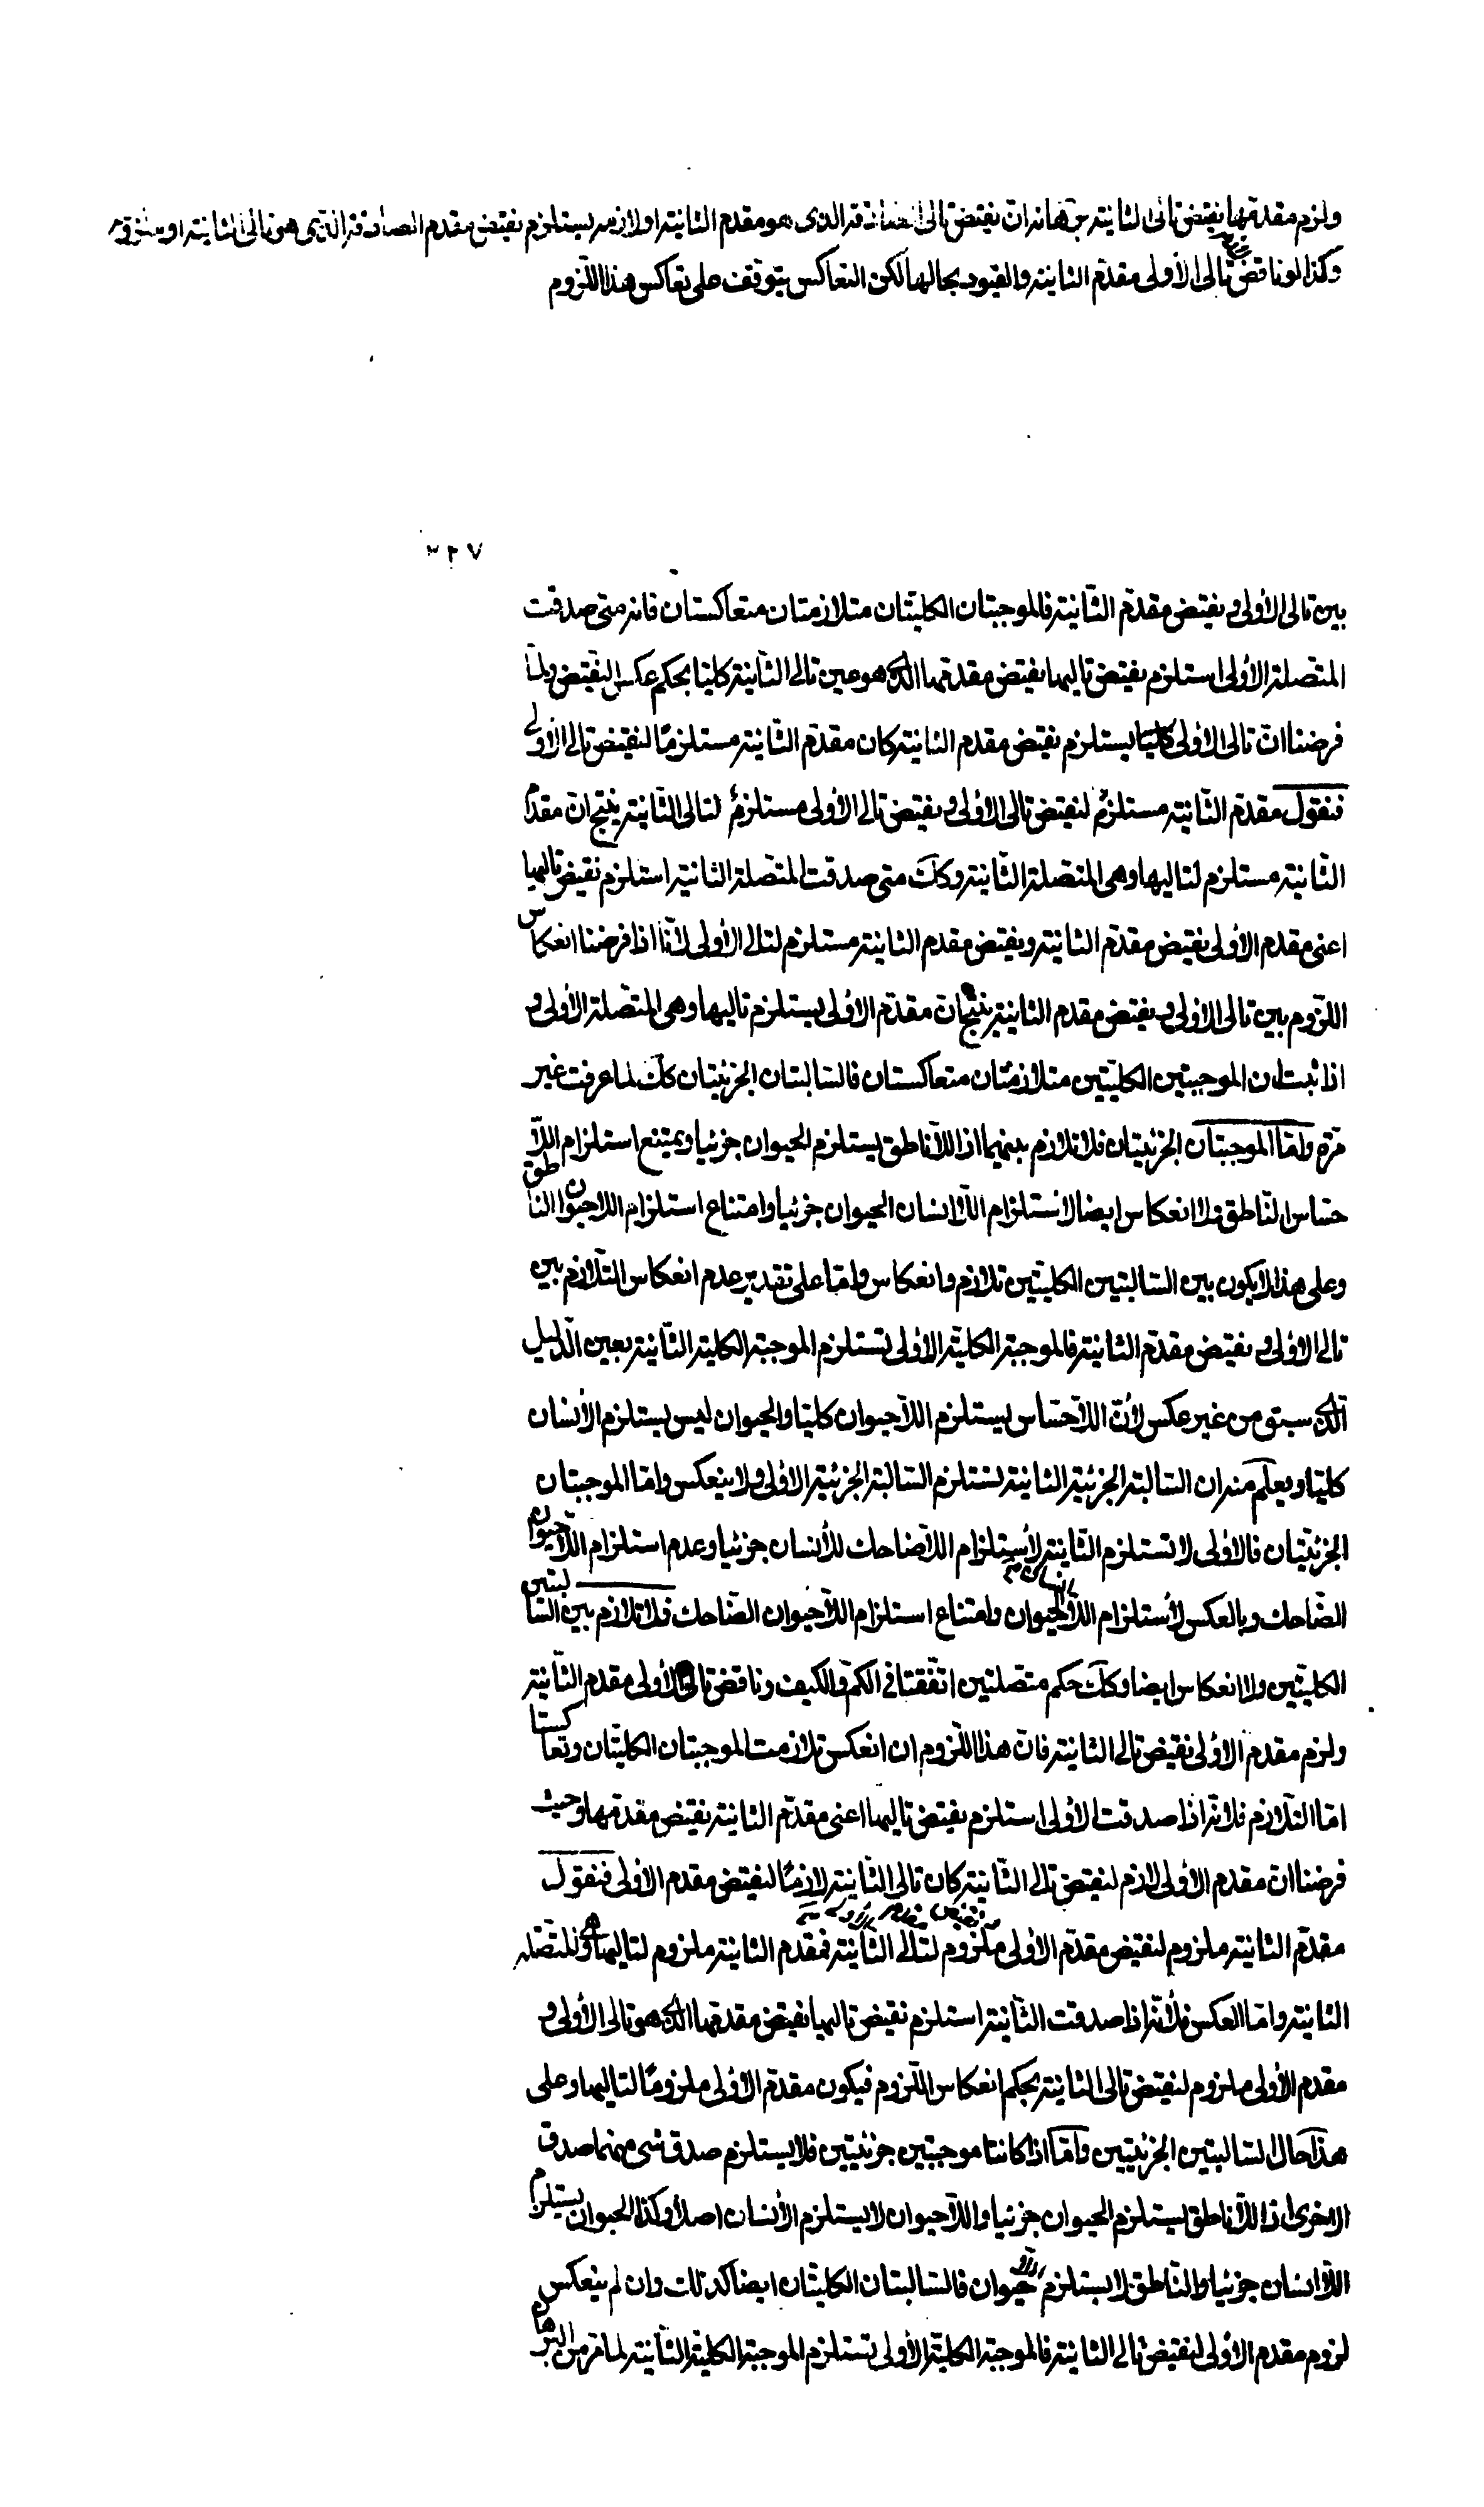 ولزم مقدمها نقيض تالى الثانية برهانه ان نقيض تالى الصادقة الذى هو مقدم الثانية او لازمه يستلزم نقيض مقدم الصادقة الذى هو تالى الثانية او ملزومه
وكذا لو ناقض تالى الأولى مقدم الثانية والقيود بحالها لكن التعاكس يتوقف على تعاكس هذا اللزوم
٣٢٧
بين تالى الأولى و نقيض مقدم الثانية فالموجبتان الكليتان متلازمتان متعاكستان فانه متى صدقت
المتصلة الأولى استلزم نقيض تاليها نقيض مقدمها الذى هو عين تالى الثانية كليا بحكم عكس النقيض ولما
فرضنا ان تالى الأولى كليا يستلزم نقيض مقدم الثانية كان مقدم الثانية مستلزما لنقيض تالى الأولى
فنقول مقدم الثانية مستلزم لنقيض تالى الأولى و نقيض تالى الأولى مستلزم لتالى الثانية ينتج ان مقدم
الثانية مستلزم لتاليها وهى المتصلة الثانية وكك متى صدقت المتصلة الثانية استلزم نقيض تاليها
اعنى مقدم الأولى نقيض مقدم الثانية ونقيض مقدم الثانية مستلزم لتالى الأولى لأنا اذا فرضنا انعكاس
اللزوم بين تالى الأولى و نقيض مقدم الثانية ينتج ان مقدم الأولى يستلزم تاليها وهى المتصلة الأولى و
اذا ثبت ان الموجبتين الكليتين متلازمتان متعاكستان فالسالبتان الجزئيتان كك لما عرفت غير
مرة واما الموجبتان الجزئيتان فلا تلازم بينهما اذ اللاناطق يستلزم الحيوان جزئيا ويمتنع استلزام اللا
حساس الناطق فلا انعكاس ايضا لاستلزام اللاانسان الحيوان جزئيا وامتناع استلزام اللاحيوان الناطق
وعلى هذا لا يكون بين السالبتين الكليتين تلازم وانعكاس واما على تقدير عدم انعكاس التلازم بين
تالى الأولى و نقيض مقدم الثانية فالموجبة الكلية الأولى تستلزم الموجبة الكلية الثانية بعين الدليل
الذى سبق من غير عكس لأن اللاحساس يستلزم اللاحيوان كليا والحيوان ليس يستلزم الأنسان
كليا ويعلم منه ان السالبة الجزئية الثانية تستلزم السالبة الجزئية الأولى ولا ينعكس واما الموجبتان
الجزئيتان فالأولى لا تستلزم الثانية لأستلزام اللاضاحك للأنسان جزئيا وعدم استلزام اللاحيوان
الضاحك وبالعكس لأستلزام اللاحيوان وامتناع استلزام اللاحيوان الضاحك فلا تلازم بين السالبتين
الكليتين ولا انعكاس ايضا وكك حكم متصلتين اتفقتا فى الكم والكيف وناقض تالى الأولى مقدم الثانية
ولزم مقدم الأولى نقيض تالى الثانية فان هذا اللزوم ان انعكس تلازمت الموجبتان الكليتان وتعاكستا
اما التلازم فلانه اذا صدقت الأولى استلزم نقيض تاليها اعنى مقدم الثانية نقيض مقدمها وحيث
فرضنا ان مقدم الأولى لازم لنقيض تالى الثانية كان تالى الثانية لازما لنقيض مقدم الأولى فنقول
مقدم الثانية ملزوم لنقيض مقدم الأولى ونقيض مقدم الأولى ملزوم لتالى الثانية فمقدم الثانية ملزوم لتاليها وهى المتصلة
الثانية واما العكس فلأنه اذا صدقت الثانية استلزم نقيض تاليها نقيض مقدمها الذى هو تالى الأولى و
مقدم الأولى ملزوم لنقيض تالى الثانية بحكم انعكاس اللزوم فيكون مقدم الأولى ملزوما لتاليها وعلى
هذا حال السالبتين الجزئيتين واما اذا كانتا موجبتين جزئيتين فلا يستلزم صدق شى منهما صدق
الاخرى اذ اللاناطق يستلزم الحيوان جزئيا واللاحيوان لا يستلزم الأنسان اصلا وكذا الحيوان يستلزم
اللاانسان جزئيا والناطق لا يستلزم اللاحيوان فالسالبتان الكليتان ايضا كذلك وان لم ينعكس
لزوم مقدم الأولى لنقيض تالى الثانية فالموجبة الكلية الأولى تستلزم الموجبة الكلية الثانية لما مر من البرهان